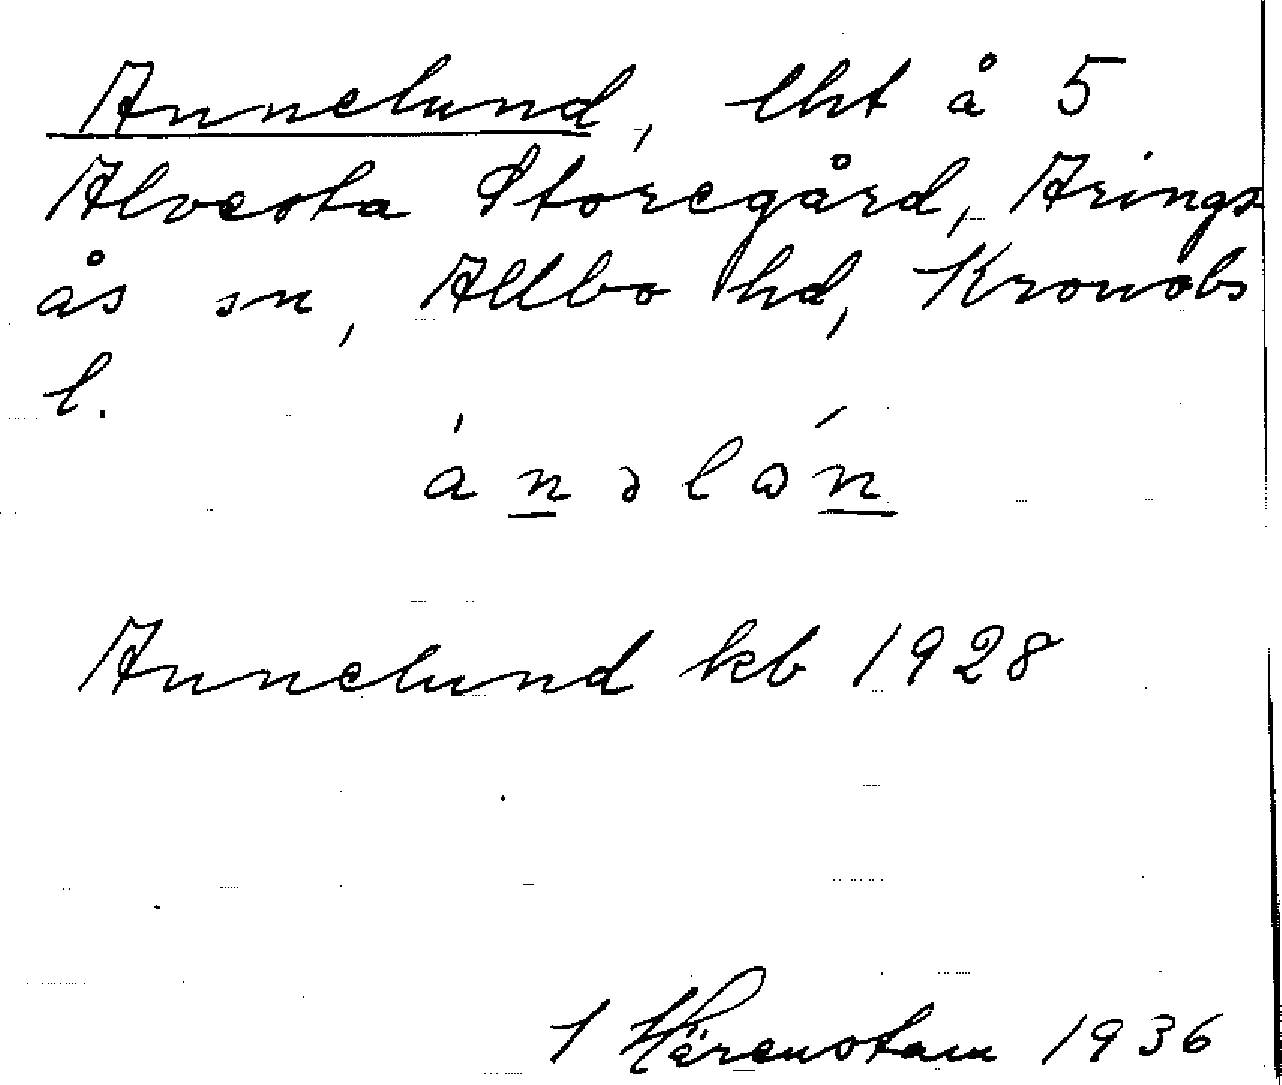 Annelund, lht å 5
Alvesta Storegård, Arings
ås sn, Allbo hd, Kronobs
l.
á n ə l ώ n
Annelund kb 1928
1 Härenstam 1936